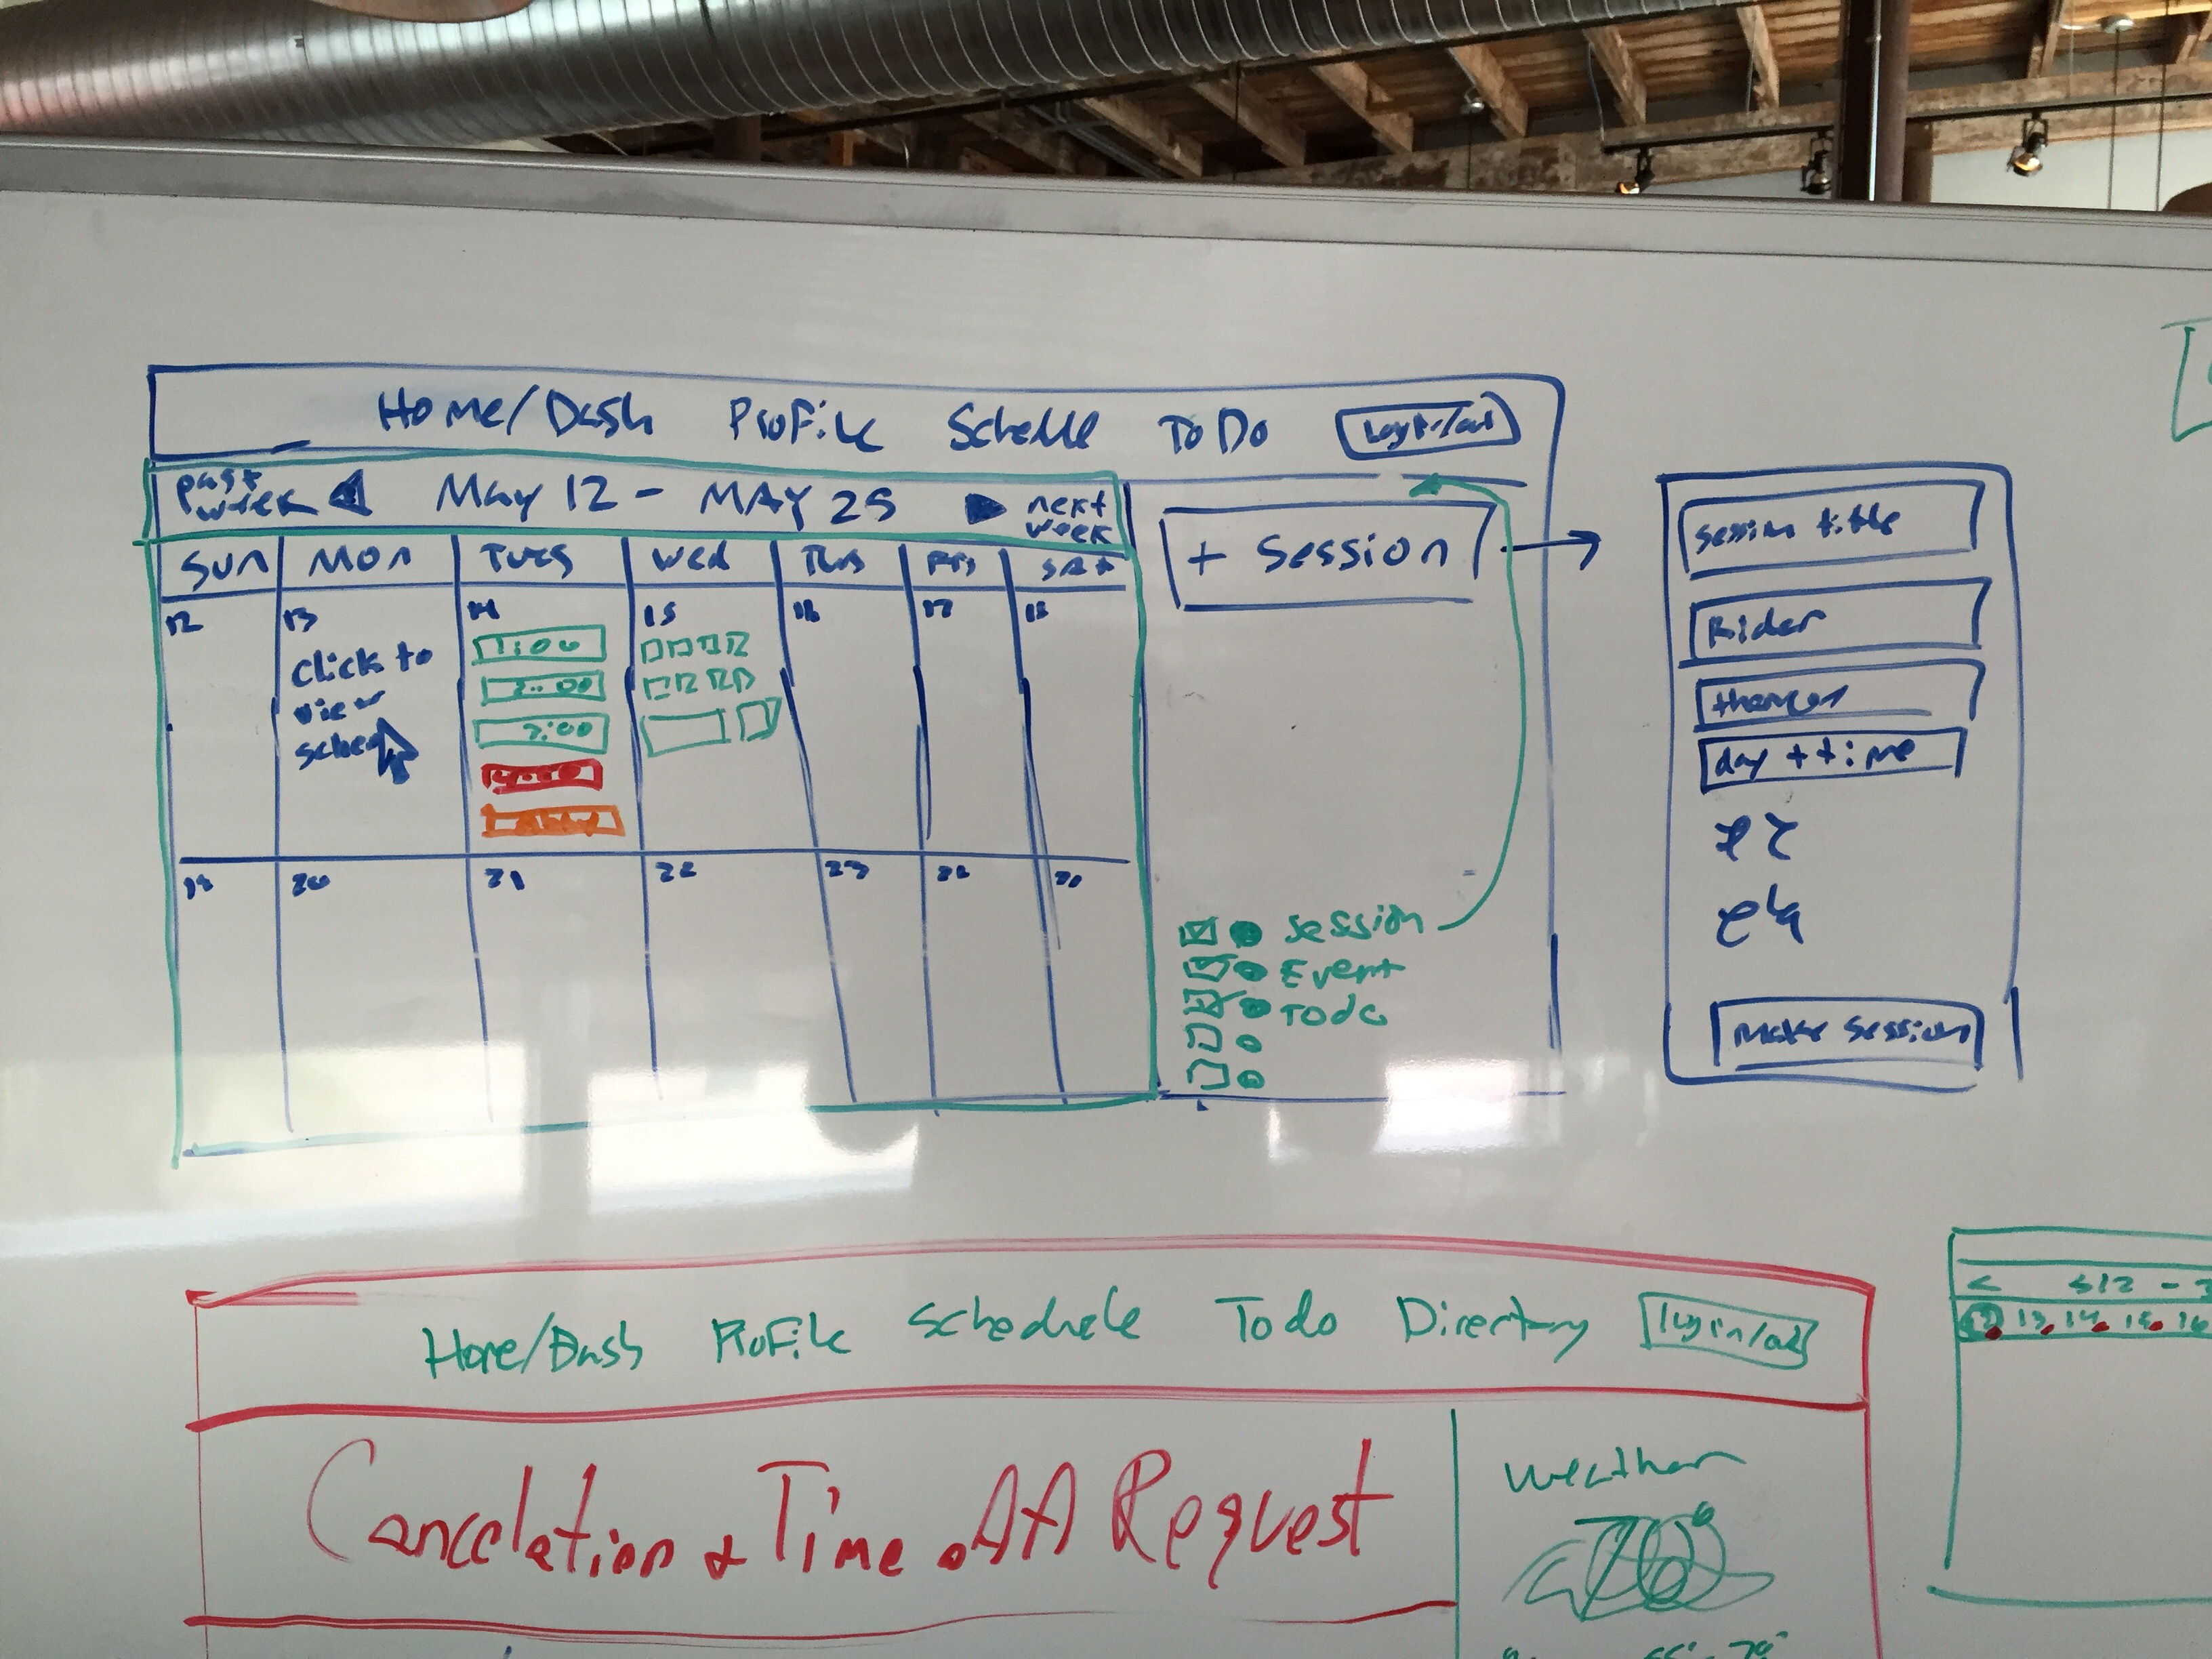 Home/Dash Profile Schedule ToDo Login/out
past week May 12 - MAY 25 next week
SUN MON TUES Wed Thurs Fri Sat
12 13 14 15 16 17 18
Click to
view
sched
1:00
2:00
3:00
19 20 21 22 23
+ Session
Session
Event
Todo
Session title
Rider
day + time
Make Session
Home/Dash Profile Schedule Todo Directory login/out
Cancelation & Time off Request
Weather
< 512 -
13 14 15 16